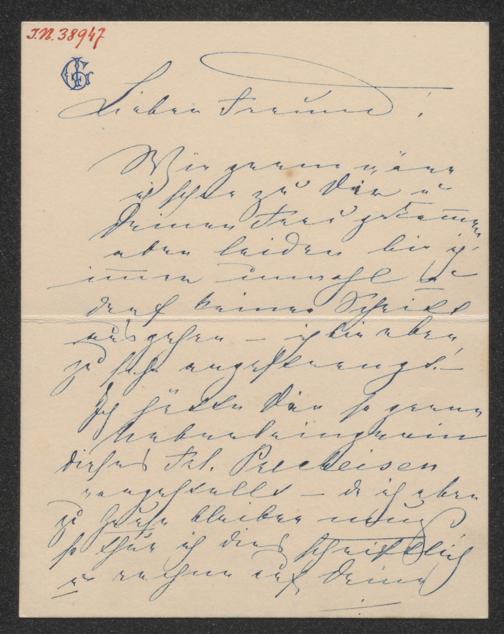 I.N. 38947
Lieber Freund!
Wie gern wäre
ich schon zu Dir u
Deiner Frau gekommen
aber leider bin ich
immer unwohl u
darf keinen Schritt
ausgehen – ich bin eben
zu sehr angestrengt! –
Ich hätte Dir so gerne
Ueberbringerin
dieses Frl. Precheisen
vorgestellt – da ich aber
zu Hause bleiben muß
so thue ich dies schriftlich
u rechne auf Deine